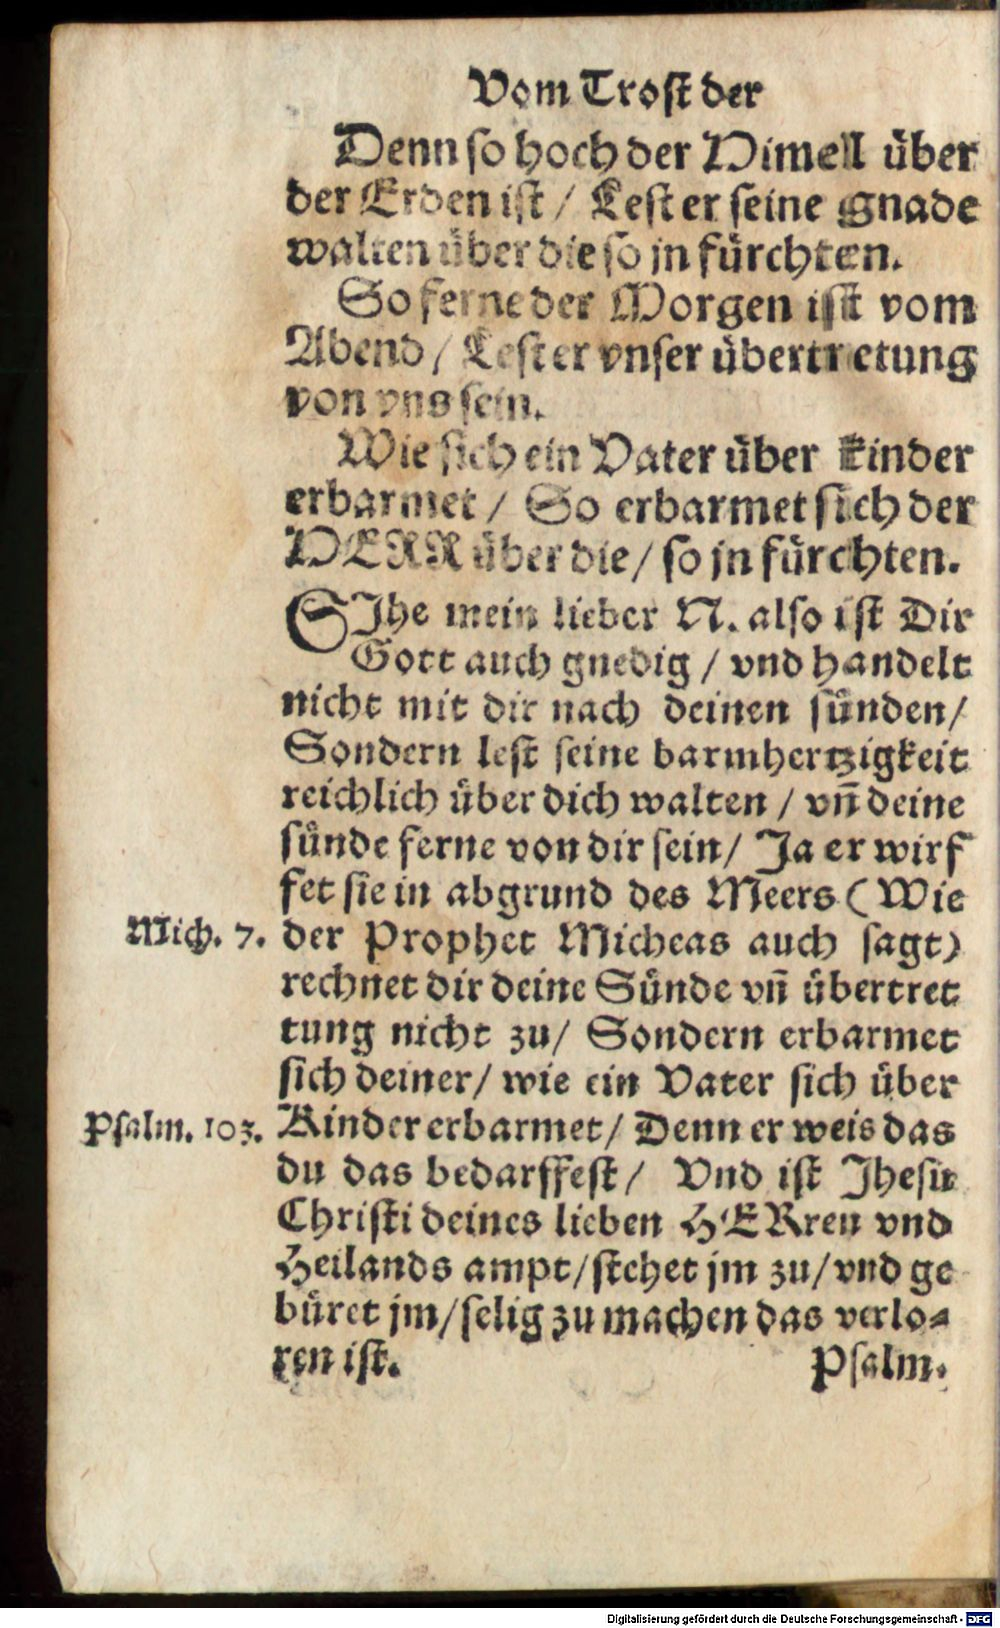 Vom Trost der
Denn so hoch der Himell über
der Erden ist / Lest er seine gnade
walten über die so jn fürchten.
So ferne der Morgen ist vom
Abend / Lest er vnser übertretung
von vns sein.
Wie sich ein Vater über kinder
erbarmet / So erbarmet sich der
HERR über die / so jn fürchten.
SIhe mein lieber N. also ist Dir
Gott auch gnedig / vnd handelt
nicht mit dir nach deinen sünden /
Sondern lest seine barmhertzigkeit
reichlich über dich walten / vn̄ deine
sünde ferne von dir sein / Ja er wirf
fet sie in abgrund des Meers (Wie
Mich. 7. der Prophet Micheas auch sagt)
rechnet dir deine Sünde vn̄ übertret
tung nicht zu / Sondern erbarmet
sich deiner / wie ein Vater sich über
Psalm. 103. Kinder erbarmet / Denn er weis das
du das bedarffest / Vnd ist Jhesu
Christi deines lieben HERren vnd
Heilands ampt / stehet jm zu / vnd ge
büret jm / selig zu machen das verlo⸗
ren ist. Psalm.
Digitalisierung gefördert durch die Deutsche Forschungsgemeinschaft - DFG